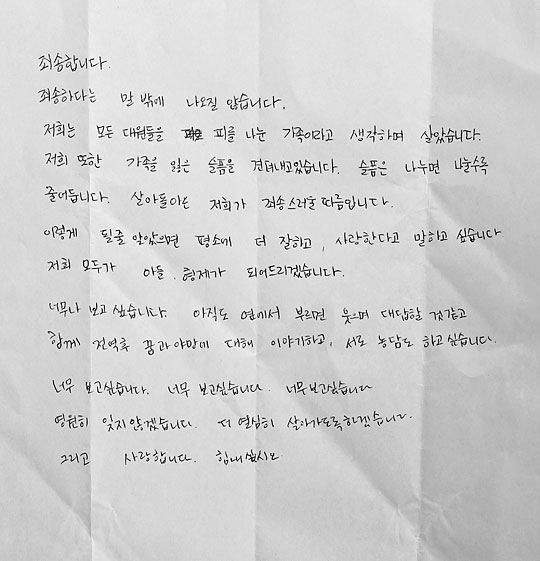 죄송합니다.
죄송하다는 말 밖에 나오질 않습니다.
저희는 모든 대원들을 피를 나눈 가족이라고 생각하며 살았습니다.
저희 또한 가족을 잃은 슬픔을 견뎌내고있습니다. 슬픔은 나누면 나눌수록
줄어듭니다. 살아돌아온 저희가 죄송스러울 따름입니다.
이렇게 될줄 알았으면 평소에 더 잘하고, 사랑한다고 말하고 싶습니다
저희 모두가 아들, 형제가 되어드리겠습니다.
너무나 보고 싶습니다. 아직도 옆에서 부르면 웃으며 대답할 것같고
함께 전역후 꿈과 야망에 대해 이야기하고, 서로 농담도 하고싶습니다.
너무 보고싶습니다. 너무 보고싶습니다. 너무보고싶습니다
영원히 잊지않겠습니다. 더 열심히 살아가도록하겠습니다.
그리고 사랑합니다. 힘내십시오